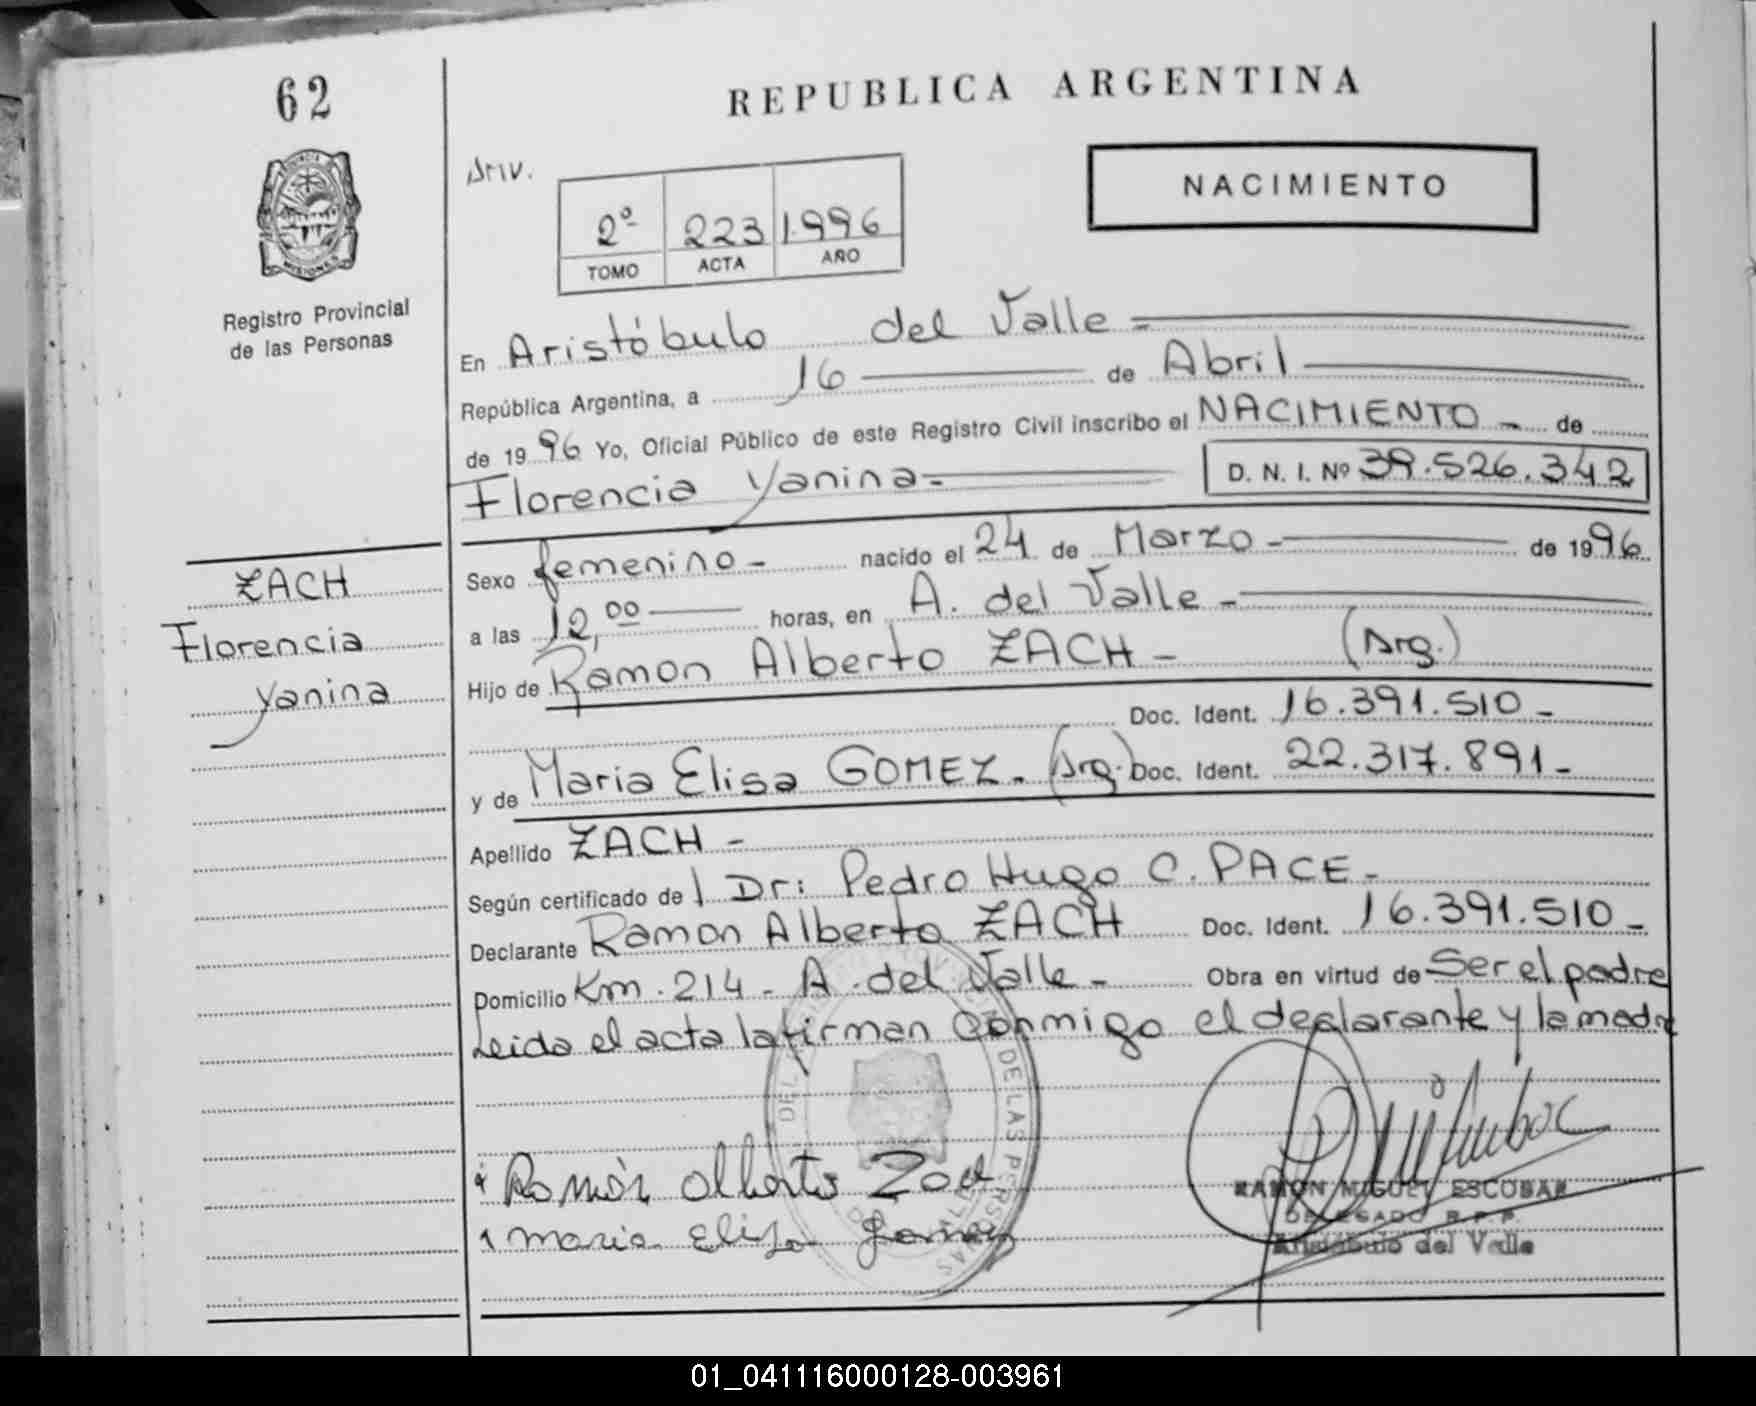 62
REPUBLICA ARGENTINA
NACIMIENTO
2º 223 1.996
TOMO ACTA AÑO
MISIONES
Registro Provincial
de las Personas
En Aristóbulo del Valle =
República Argentina, a 16 de Abril
de 1996 Yo, Oficial Público de este Registro Civil inscribo el NACIMIENTO - de
Florencia Yanina - D. N. I. Nº 39.526.342
Sexo femenino - nacido el 24 de Marzo - de 1996
a las 12,00 horas, en A. del Valle -
Hijo de Ramon Alberto ZACH - (Arg.)
Doc. Ident. 16.391.510 -
y de Maria Elisa GOMEZ. (Arg.) Doc. Ident. 22.317.891 -
Apellido ZACH -
Según certificado de l Dr: Pedro Hugo C. PACE -
Declarante Ramon Alberto ZACH Doc. Ident. 16.391.510 -
Domicilio Km. 214 - A. del Valle - Obra en virtud de Ser el padre
Leida el acta la firman conmigo el declarante y la madre
ZACH
Florencia
Yanina
DE LAS PERSONAS
Ramón Alberto Zach
Maria Elisa Gomez
RAMON MIGUEL ESCOBAR
DELEGADO R.P.P.
Aristóbulo del Valle
01_041116000128-003961